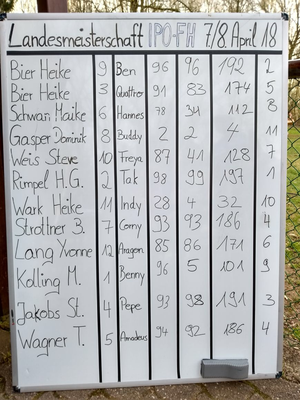 Landesmeisterschaft IPO-FH 7/8. April 18
Bier Heike 9 Ben 96 96 192 2
Bier Heike 3 Quattro 91 83 174 5
Schwan Maike 6 Hannes 78 34 112 8
Gasper Dominik 8 Buddy 2 2 4 11
Weis Steve 10 Freya 87 41 128 7
Rümpel H.G. 2 Tak 98 99 197 1
Wark Heike 11 Indy 28 4 32 10
Strottner B. 7 Corny 93 93 186 4
Lang Yvonne 12 Aragon 85 86 171 6
Kolling M. 1 Benny 96 5 101 9
Jakobs St. 4 Pepe 93 98 191 3
Wagner T. 5 Amadeus 94 92 186 4